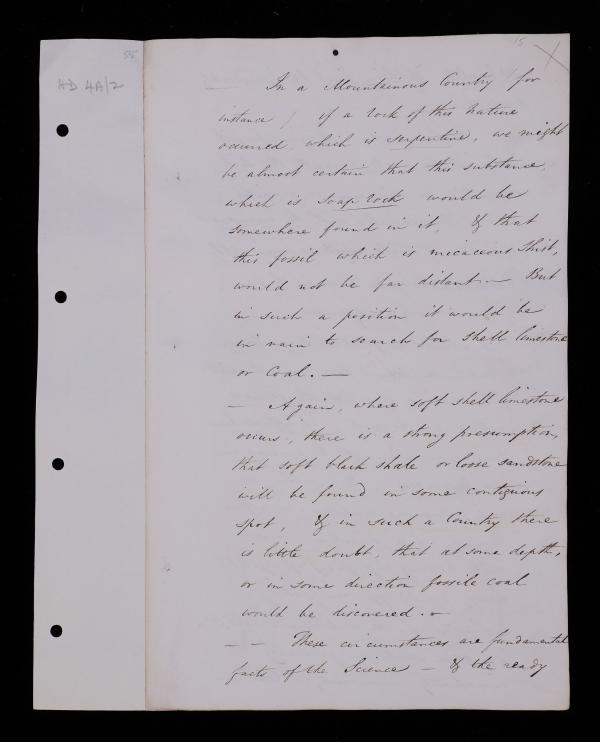 55
HD 4A/2
15
In a Mountainous Country (for
instance) if a rock of this nature
occurred which is serpentine, we might
be almost certain that this substance,
which is soap rock would be
somewhere found in it, & that
this fossil which is micaceous Shist,
would not be far distant. — But
in such a position it would be
in vain to search for shell limestone
or Coal. —
— Again, where soft shell limestone
occurs, there is a strong presumption,
that soft black shale or loose sandstone
will be found in some contiguous
spot, & in such a Country there
is little doubt, that at some depth,
or in some direction fossile coal
would be discovered. —
— — These circumstances are fundamental
facts of the Science — & the ready